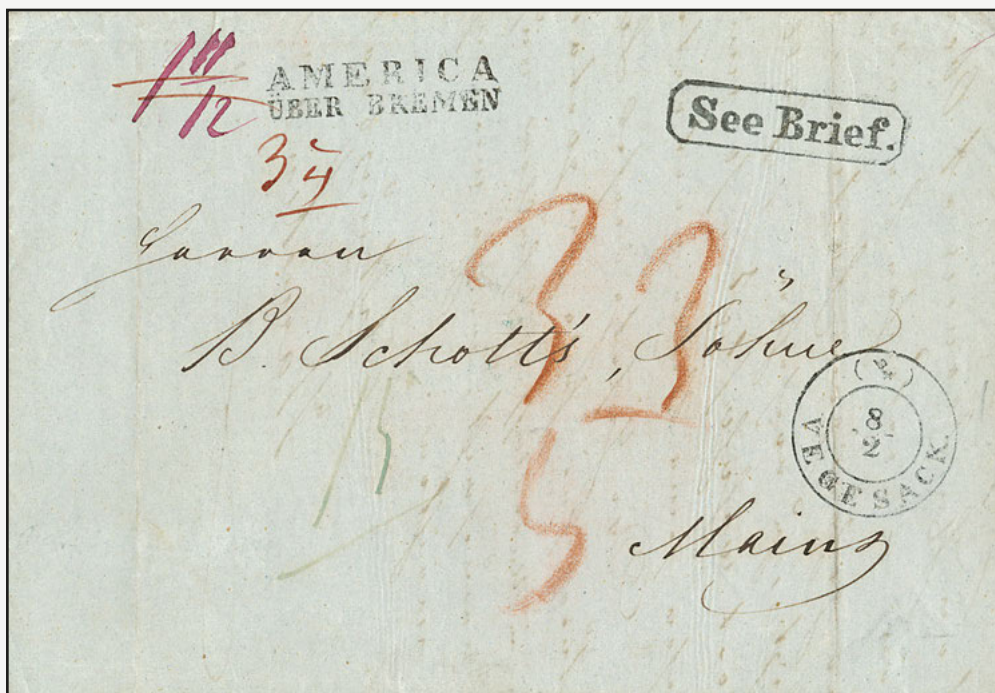 AMERICA
ÜBER BREMEN
See Brief.
3 5/4
Herren
B. Schott's, Söhne
33
5
8
2
VEGESACK.
Mainz